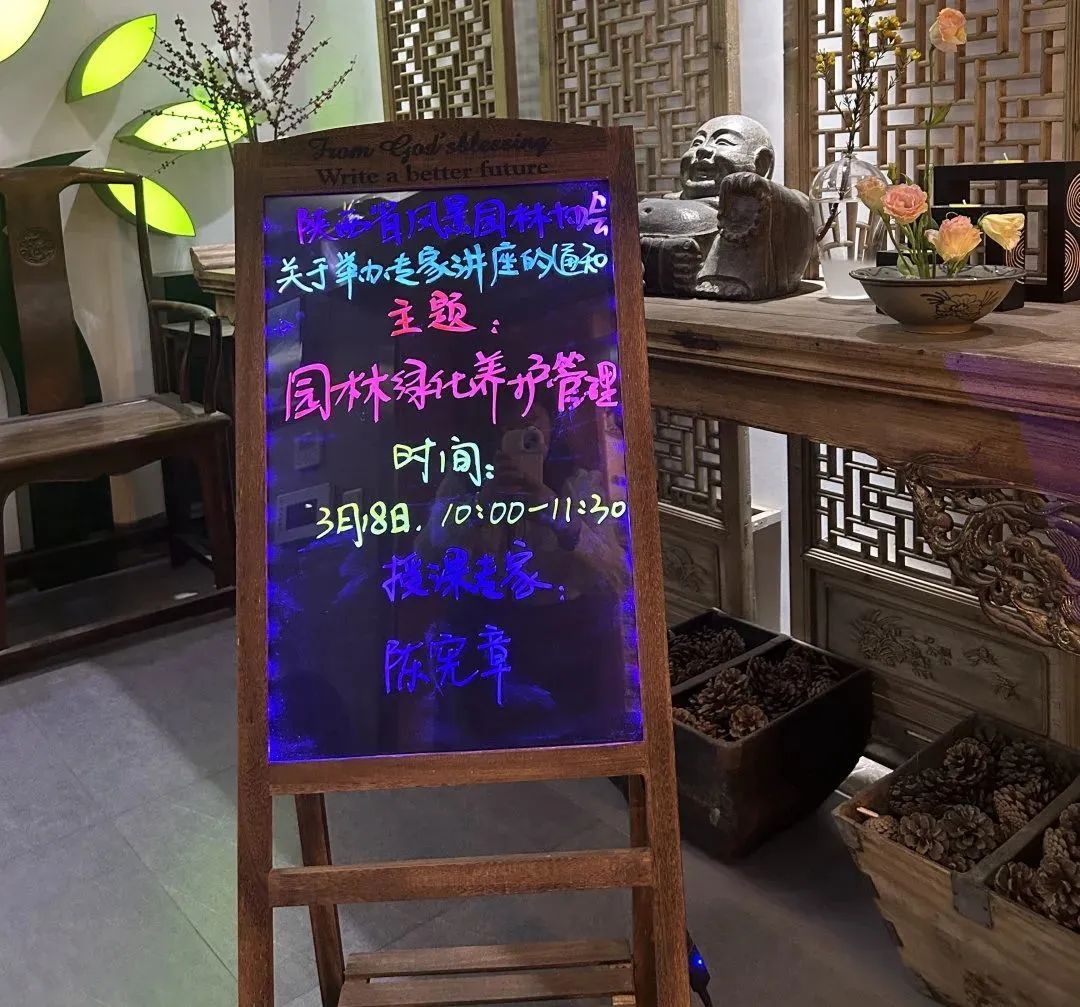 From God's blessing
Write a better future
陕西省风景园林协会
关于举办专家讲座的通知
主题：
园林绿化养护管理
时间：
3月18日. 10:00-11:30
授课专家：
陈宪章